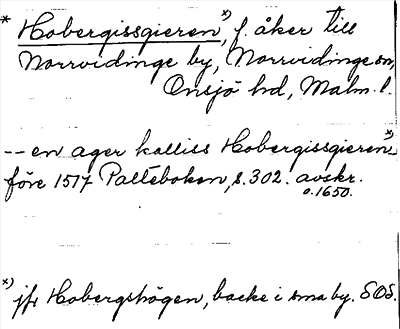 * Hobergissgieren *), f. åker till
Norrvidinge by, Norrvidinge sn,
Onsjö hd, Malm. l.
-- en ager kalliss Hobergissgieren *)
före 1517 Palteboken, s. 302. avskr.
o. 1650.
*) jfr Hobergshögen, backe i sma by. SOS.